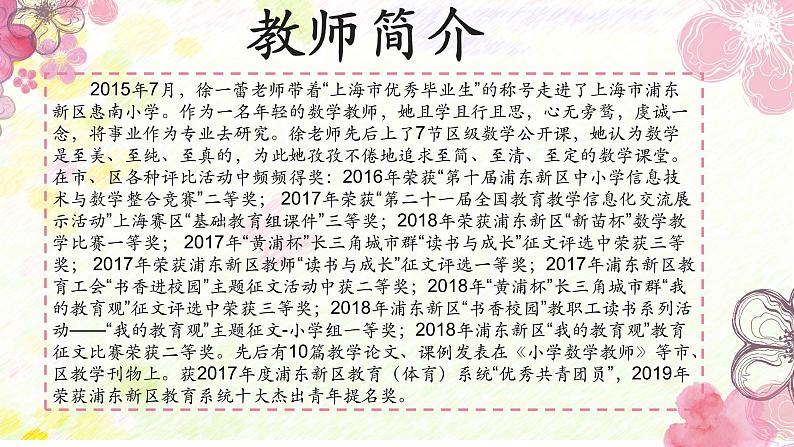 教师简介
2015年7月，徐一蕾老师带着“上海市优秀毕业生”的称号走进了上海市浦东
新区惠南小学。作为一名年轻的数学教师，她且学且行且思，心无旁骛，虔诚一
念，将事业作为专业去研究。徐老师先后上了7节区级数学公开课，她认为数学
是至美、至纯、至真的，为此她孜孜不倦地追求至简、至清、至定的数学课堂。
在市、区各种评比活动中频频得奖：2016年荣获“第十届浦东新区中小学信息技
术与数学整合竞赛”二等奖； 2017年荣获“第二十一届全国教育教学信息化交流展
示活动”上海赛区“基础教育组课件”三等奖；2018年荣获浦东新区“新苗杯”数学教
学比赛一等奖； 2017年“黄浦杯”长三角城市群“读书与成长”征文评选中荣获三等
奖； 2017年荣获浦东新区教师“读书与成长”征文评选一等奖；2017年浦东新区教
育工会“书香进校园”主题征文活动中获二等奖；2018年“黄浦杯”长三角城市群“我
的教育观”征文评选中荣获三等奖；2018年浦东新区“书香校园”教职工读书系列活
动——“我的教育观”主题征文-小学组一等奖；2018年浦东新区“我的教育观”教育
征文比赛荣获二等奖。先后有10篇教学论文、课例发表在《小学数学教师》等市、
区教学刊物上。获2017年度浦东新区教育（体育）系统“优秀共青团员”，2019年
荣获浦东新区教育系统十大杰出青年提名奖。